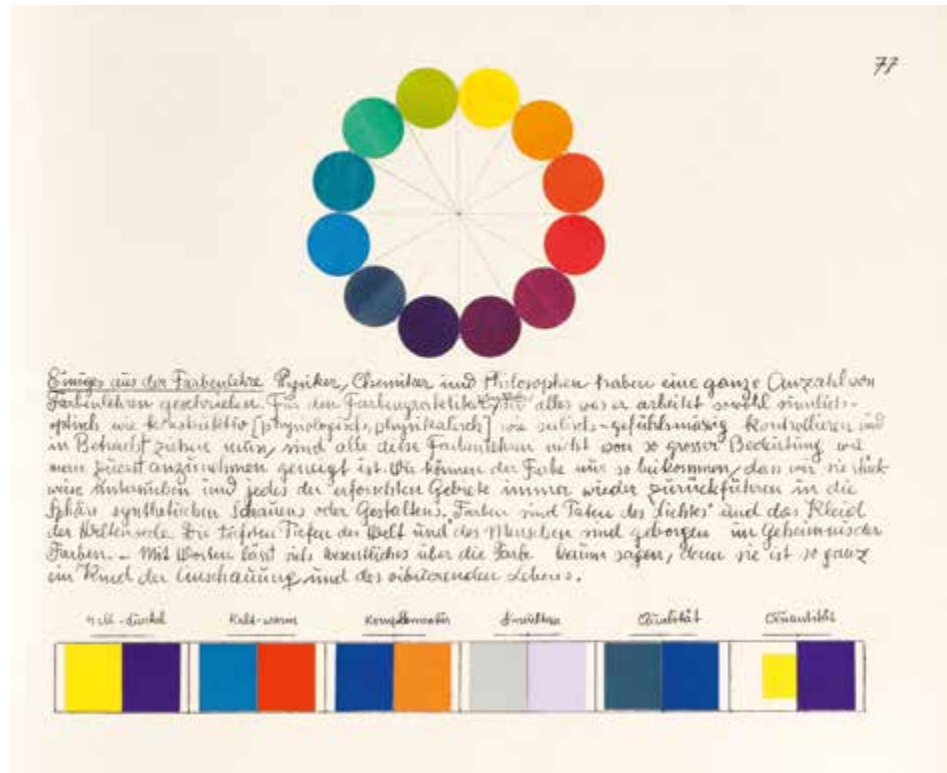 77
Einiges aus der Farbenlehre. Physiker, Chemiker und Philosophen haben eine ganze Anzahl von
Farbenlehren geschrieben. Für den Farbenpraktiker, der alles was er arbeitet sowohl sinnlich-
optisch wie konstruktiv [physiologisch, physikalisch] wie seelisch-gefühlsmässig kontrollieren und
in Betracht ziehen muss, sind alle diese Farbenlehren nicht von so grosser Bedeutung wie
man zuerst anzunehmen geneigt ist. Wir können der Farbe nur so beikommen, dass wir sie stück-
weise untersuchen und jedes der erforschten Gebiete immer wieder zurückführen in die
Sphäre synthetischen Schauens oder Gestaltens. Farben sind Taten des Lichtes und das Kleid
der Weltenseele. Die tiefsten Tiefen der Welt und des Menschen sind geborgen im Geheimnis der
Farben. – Mit Worten lässt sich wesentliches über die Farbe kaum sagen, denn sie ist so ganz
ein Kind der Anschauung und des vibrierenden Lebens.
Hell-dunkel Kalt-warm Komplementär Simultan Qualität Quantität